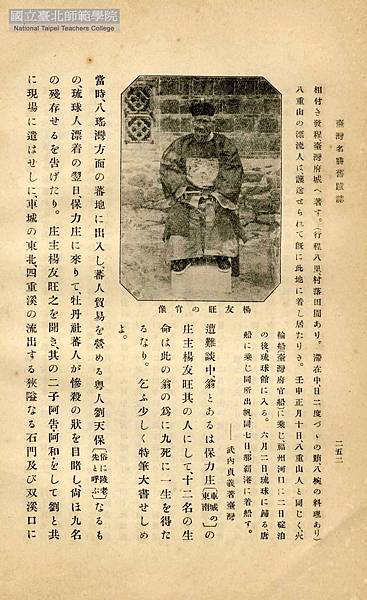 國立臺北師範學院
National Taipei Teachers College
臺灣名勝舊蹟誌
二五二
相付き發程臺灣府城へ著す。(行程八里村落田園あり。滯在中日二度づゝの賄八椀の料理あり)
八重山の漂流人は護送せられて既に此地に着し居たりき。壬申正月十日八重山人と同じく火
輪船臺灣府官船に乘じ福州河口に二日碇泊
の後琉球館に入る。六月二日琉球に歸る、唐
船に乘じ同所出帆同七日那覇港に着船す。
――武内貞義著臺灣
遭難談中、翁とあるは保力庄(車城の東南)の
庄主楊友旺其の人にして、十二名の生
命は此の翁の爲に九死に一生を得た
るなり。乞ふ少しく特筆大書せしめ
よ。
楊友旺の官保
當時八瑤灣方面の蕃地に出入し、蕃人貿易を營める粤人劉天保(俗に陵老先と呼ぶ)なるも
の琉球人漂着の翌日保力庄に來りて、牡丹社蕃人が慘殺の狀を目睹し、尙ほ九名
の殘存せるを告げたり。庄主楊友旺之を聞き、其の二子阿告、阿和、をして劉と共
に現場に遣はせしに、車城の東北四重溪の流出する狹隘なる石門及び双溪口に